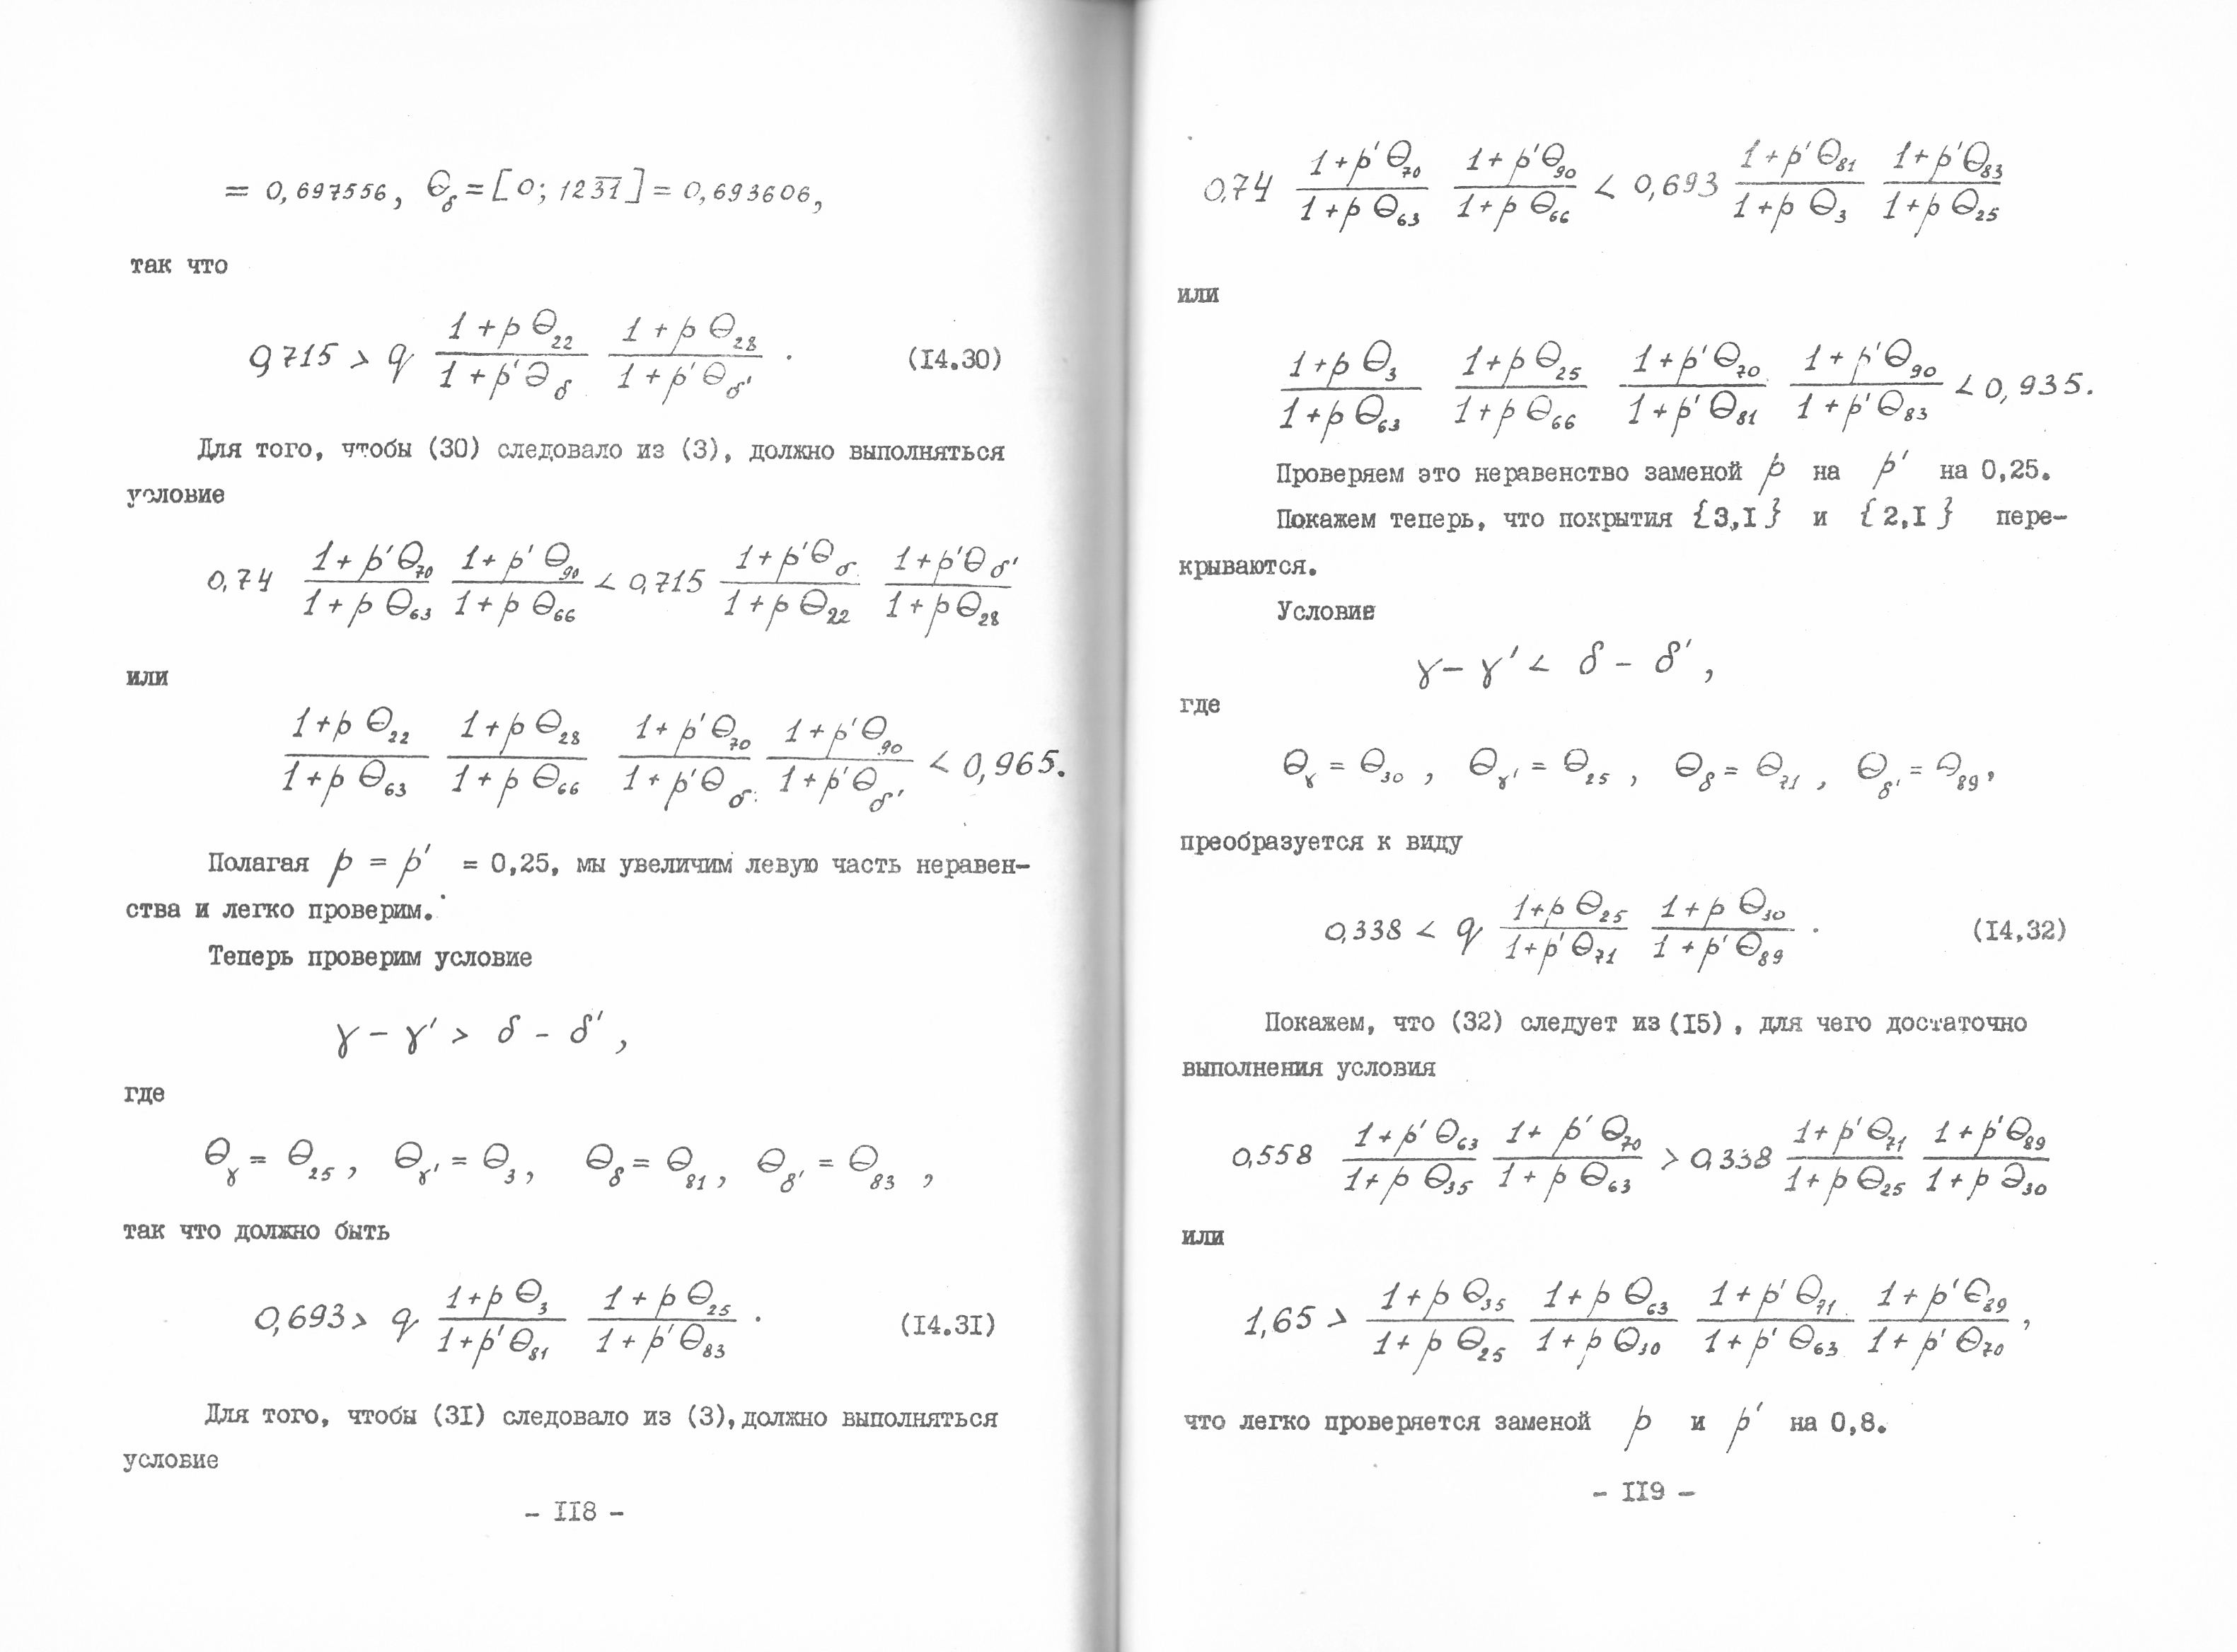 = 0,697556, Θ_δ = [0; 12\overline{31}] = 0,693606,
так что
0,715 > q \frac{1+pΘ_{22}}{1+p'Θ_δ} \frac{1+pΘ_{28}}{1+p'Θ_{δ'}} . (I4.30)
Для того, чтобы (30) следовало из (3), должно выполняться
условие
0,74 \frac{1+p'Θ_{70}}{1+pΘ_{63}} \frac{1+p'Θ_{90}}{1+pΘ_{66}} < 0,715 \frac{1+p'Θ_δ}{1+pΘ_{22}} \frac{1+p'Θ_{δ'}}{1+pΘ_{28}}
или
\frac{1+pΘ_{22}}{1+pΘ_{63}} \frac{1+pΘ_{28}}{1+pΘ_{66}} \frac{1+p'Θ_{70}}{1+p'Θ_δ} \frac{1+p'Θ_{90}}{1+p'Θ_{δ'}} < 0,965.
Полагая p = p' = 0,25, мы увеличим левую часть неравен-
ства и легко проверим.
Теперь проверим условие
γ - γ' > δ - δ',
где
Θ_γ = Θ_{25}, Θ_{γ'} = Θ_3, Θ_δ = Θ_{81}, Θ_{δ'} = Θ_{83},
так что должно быть
0,693 > q \frac{1+pΘ_3}{1+p'Θ_{81}} \frac{1+pΘ_{25}}{1+p'Θ_{83}} . (I4.3I)
Для того, чтобы (3I) следовало из (3), должно выполняться
условие
- II8 -
0,74 \frac{1+p'Θ_{70}}{1+pΘ_{63}} \frac{1+p'Θ_{90}}{1+pΘ_{66}} < 0,693 \frac{1+p'Θ_{81}}{1+pΘ_3} \frac{1+p'Θ_{83}}{1+pΘ_{25}}
или
\frac{1+pΘ_3}{1+pΘ_{63}} \frac{1+pΘ_{25}}{1+pΘ_{66}} \frac{1+p'Θ_{70}}{1+p'Θ_{81}} \frac{1+p'Θ_{90}}{1+p'Θ_{83}} < 0,935.
Проверяем это неравенство заменой p на p' на 0,25.
Покажем теперь, что покрытия {3,I} и {2,I} пере-
крываются.
Условие
γ - γ' < δ - δ',
где
Θ_γ = Θ_{30}, Θ_{γ'} = Θ_{25}, Θ_δ = Θ_{71}, Θ_{δ'} = Θ_{89},
преобразуется к виду
0,338 < q \frac{1+pΘ_{25}}{1+p'Θ_{71}} \frac{1+pΘ_{30}}{1+p'Θ_{89}} . (I4.32)
Покажем, что (32) следует из (I5), для чего достаточно
выполнения условия
0,558 \frac{1+p'Θ_{63}}{1+pΘ_{35}} \frac{1+p'Θ_{70}}{1+pΘ_{63}} > 0,338 \frac{1+p'Θ_{71}}{1+pΘ_{25}} \frac{1+p'Θ_{89}}{1+pΘ_{30}}
или
1,65 > \frac{1+pΘ_{35}}{1+pΘ_{25}} \frac{1+pΘ_{63}}{1+pΘ_{30}} \frac{1+p'Θ_{71}}{1+p'Θ_{63}} \frac{1+p'Θ_{89}}{1+p'Θ_{70}},
что легко проверяется заменой p и p' на 0,8.
- II9 -